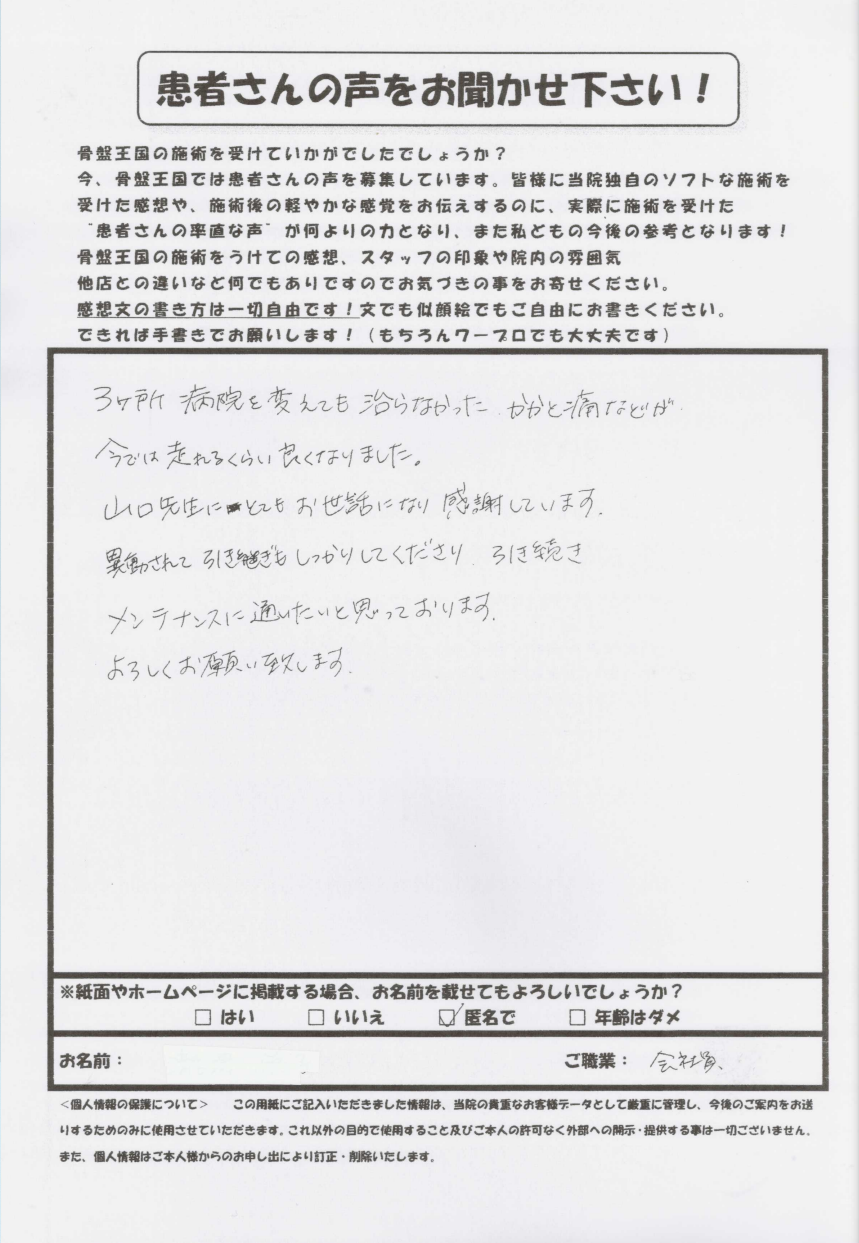 患者さんの声をお聞かせ下さい！
骨盤王国の施術を受けていかがでしたでしょうか？
今、骨盤王国では患者さんの声を募集しています。皆様に当院独自のソフトな施術を
受けた感想や、施術後の軽やかな感覚をお伝えするのに、実際に施術を受けた
“患者さんの率直な声”が何よりの力となり、また私どもの今後の参考となります！
骨盤王国の施術をうけての感想、スタッフの印象や院内の雰囲気
他店との違いなど何でもありですのでお気づきの事をお寄せください。
感想文の書き方は一切自由です！文でも似顔絵でもご自由にお書きください。
できれば手書きでお願いします！（もちろんワープロでも大丈夫です）
3ヶ所 病院を変えても治らなかった かかと痛などが
今では走れるくらい良くなりました。
山口先生にとてもお世話になり 感謝しています.
異動されて 引き継ぎもしっかりしてくださり 引き続き
メンテナンスに通いたいと思っております.
よろしくお願い致します.
※紙面やホームページに掲載する場合、お名前を載せてもよろしいでしょうか？
□ はい □ いいえ ☑ 匿名で □ 年齢はダメ
お名前： ご職業： 会社員、
＜個人情報の保護について＞ この用紙にご記入いただきました情報は、当院の貴重なお客様データとして厳重に管理し、今後のご案内をお送
りするためのみに使用させていただきます。これ以外の目的で使用すること及びご本人の許可なく外部への開示・提供する事は一切ございません。
また、個人情報はご本人様からのお申し出により訂正・削除いたします。